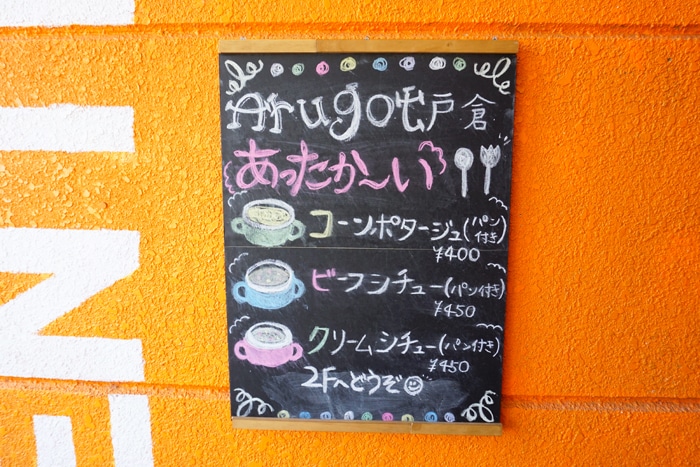 Arugot戸倉
あったか〜い
コーンポタージュ(パン付き)
¥400
ビーフシチュー(パン付き)
¥450
クリームシチュー(パン付き)
¥450
2Fへどうぞ
INE